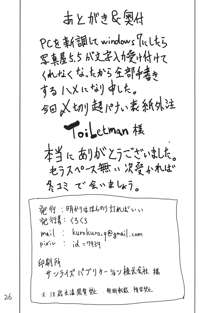 あとがき&奥付
PCを新調してwindows7にしたら
写真屋5.5が文字入力受け付けて
くれなくなったから全部手書き
するハメになりました。
今回〆切り超パナい表紙外注
Toiletman 様
本当にありがとうございました。
もうスペース無い 次受かれば
冬コミで会いましょう。
発行:明かりはほんのり灯ればいい
発行者:くろくろ
mail : kurokuro.9@gmail.com
pixiv : id=7939
印刷所
サンライズパブリケーション株式会社 様
26